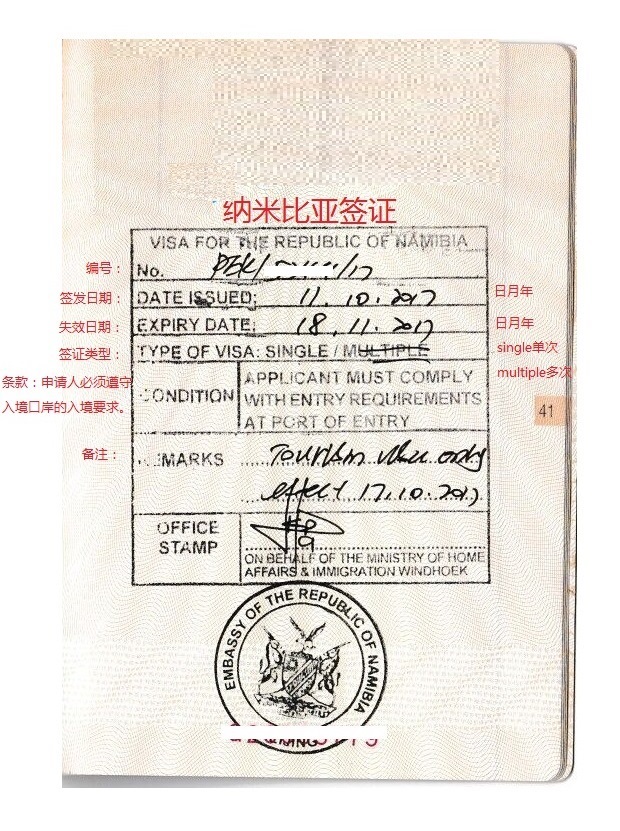 纳米比亚签证
VISA FOR THE REPUBLIC OF NAMIBIA
编号： No. /17
签发日期： DATE ISSUED; 11.10.2017 日月年
失效日期： EXPIRY DATE; 18.11.2017 日月年
签证类型： TYPE OF VISA: SINGLE / MULTIPLE single单次
multiple多次
条款：申请人必须遵守
入境口岸的入境要求。
CONDITION
APPLICANT MUST COMPLY
WITH ENTRY REQUIREMENTS
AT PORT OF ENTRY
41
备注： MARKS Tourism only
effect 17.10.2017
OFFICE
STAMP
ON BEHALF OF THE MINISTRY OF HOME
AFFAIRS & IMMIGRATION WINDHOEK
EMBASSY OF THE REPUBLIC OF NAMIBIA